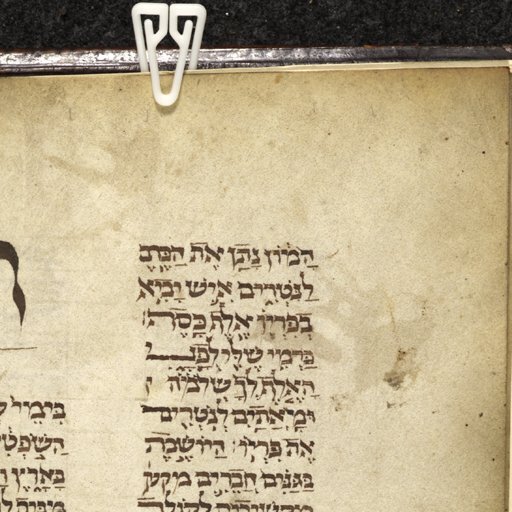 הַמוֹן נָתַן אֶת הַכֶּרֶם
לַנֹּטְרִים אִישׁ יָבִא
בְּפִרְיוֹ אֶלֶף כָּסֶף
כַּרְמִי שֶׁלִּי לְפָנָי
הָאֶלֶף לְךָ שְׁלֹמֹה
וּמָאתַיִם לְנֹטְרִים
אֶת פִּרְיוֹ הַיּוֹשֶׁבֶת
בַּגַּנִּים חֲבֵרִים מקש
מַקְשִׁיבִים לְקוֹלֵךְ
בִּימֵי
הַשֹּׁפְטִי
בָּאָרֶץ